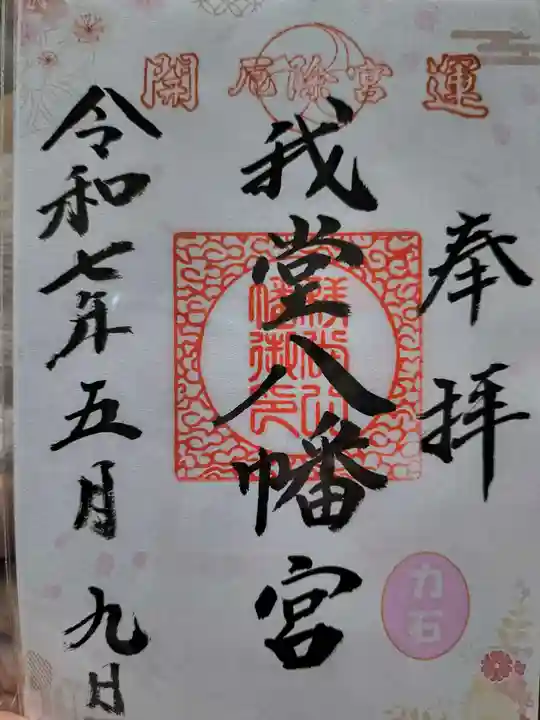 開 厄除宮 運
奉拝
我堂八幡宮
令和七年五月九日
力石